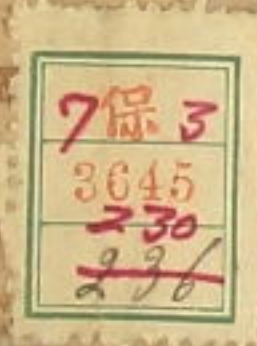 7 保 3
3645
230
236